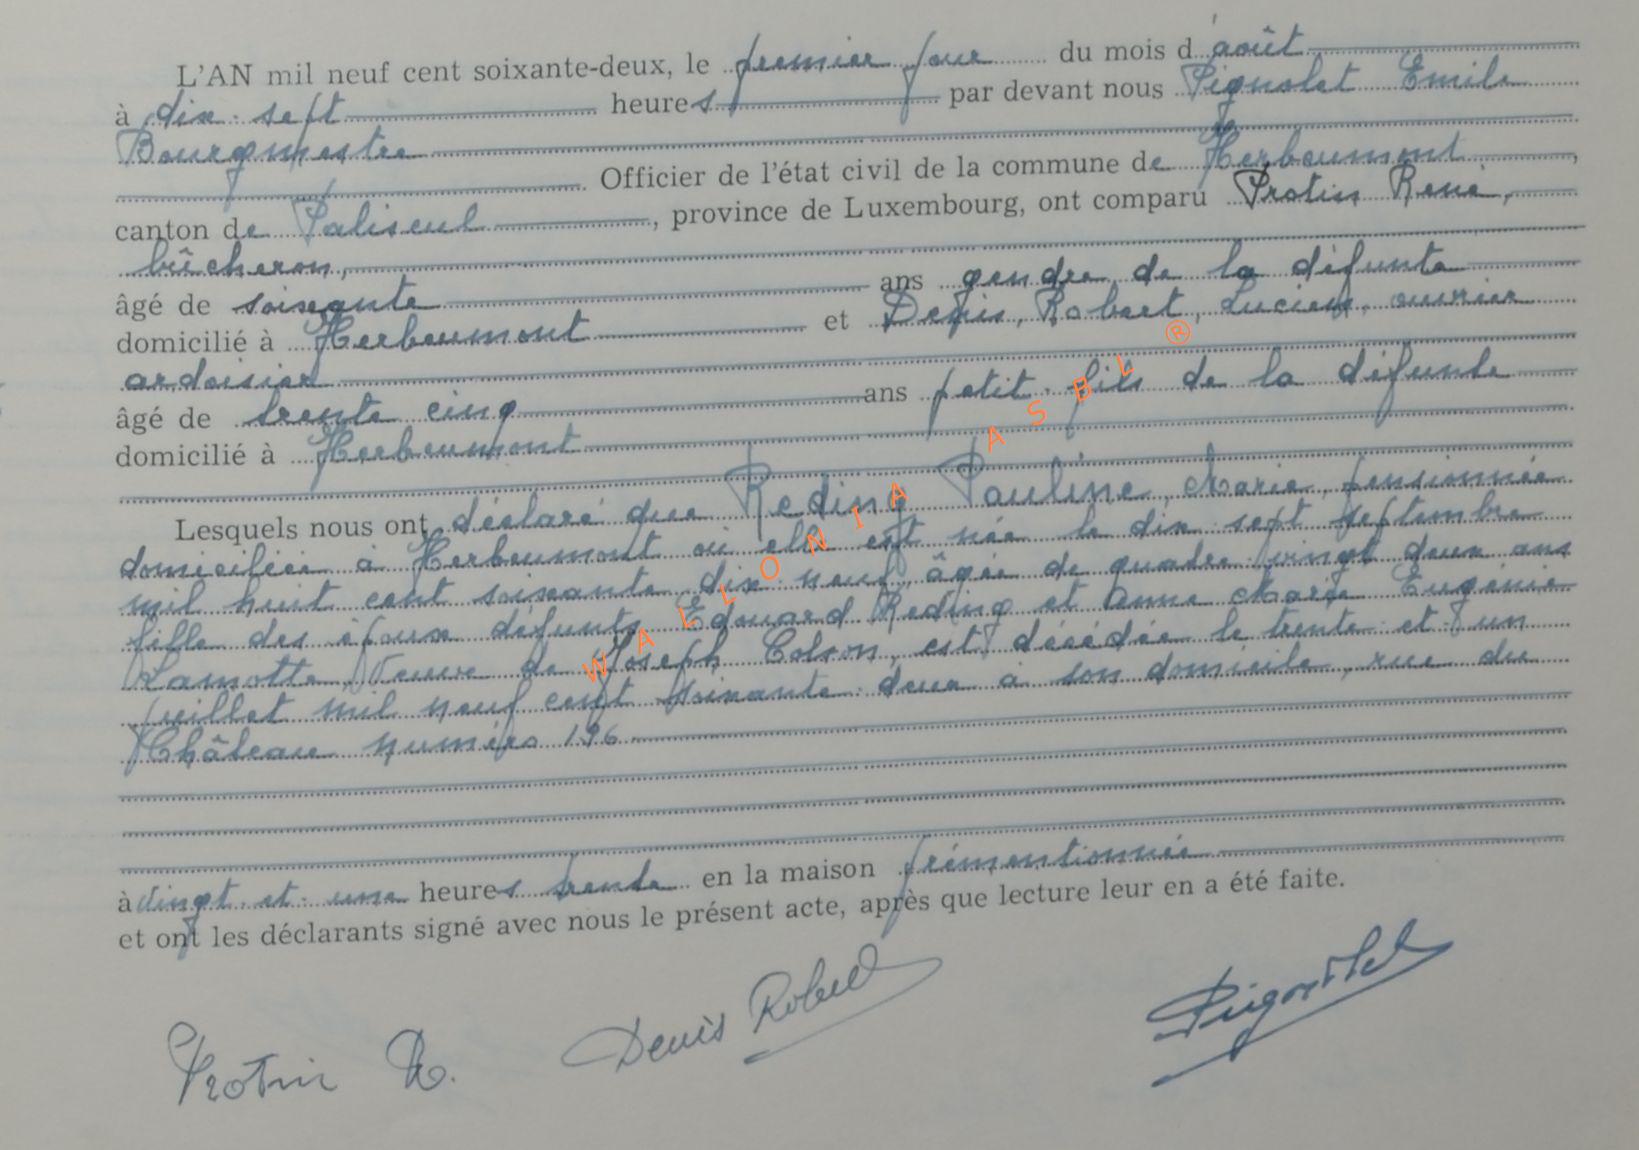 L'AN mil neuf cent soixante-deux, le premier jour du mois d'août
à dix-sept heures par devant nous Pignolet Emile
Bourgmestre
Officier de l'état civil de la commune de Herbeumont,
canton de Paliseul, province de Luxembourg, ont comparu Protin René,
bûcheron,
âgé de soixante ans gendre de la défunte
domicilié à Herbeumont et Denis, Robert, Lucien, ouvrier
ardoisier
âgé de trente cinq ans petit-fils de la défunte
domicilié à Herbeumont
Lesquels nous ont déclaré que Reding Pauline, Marie, pensionnée
domiciliée à Herbeumont où elle est née le dix-sept septembre
mil huit cent soixante-dix-neuf, âgée de quadre vingt deux ans
fille des époux défunts Edouard Reding et Anne Marie Eugénie
Lamotte, Veuve de Joseph Colson, est décédée le trente-et-un
juillet mil neuf cent soixante-deux à son domicile, rue du
Château numéro 196
à vingt-et-une heures trente en la maison prémentionnée
et ont les déclarants signé avec nous le présent acte, après que lecture leur en a été faite.
Protin R. Denis Robert Pignolet
WALLONIA ASBL ®